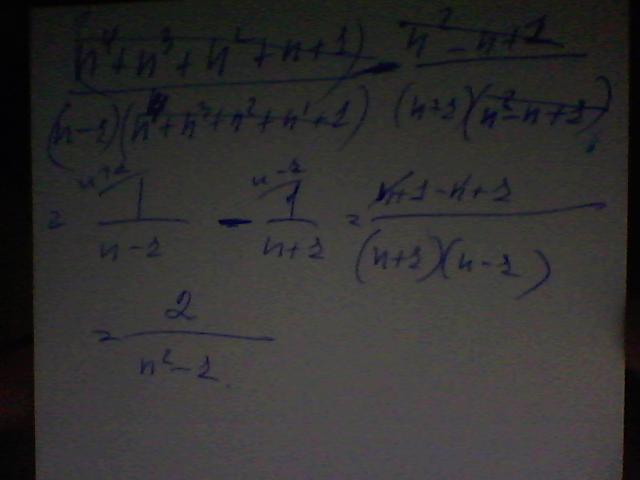 (n⁴+n³+n²+n+1) - n²-n+1
(n-1)(n⁴+n³+n²+n¹+1) (n+1)(n²-n+1)
n+1 n-1
= 1 - 1 = n+1-n+1
n-1 n+1 (n+1)(n-1)
= 2
n²-1